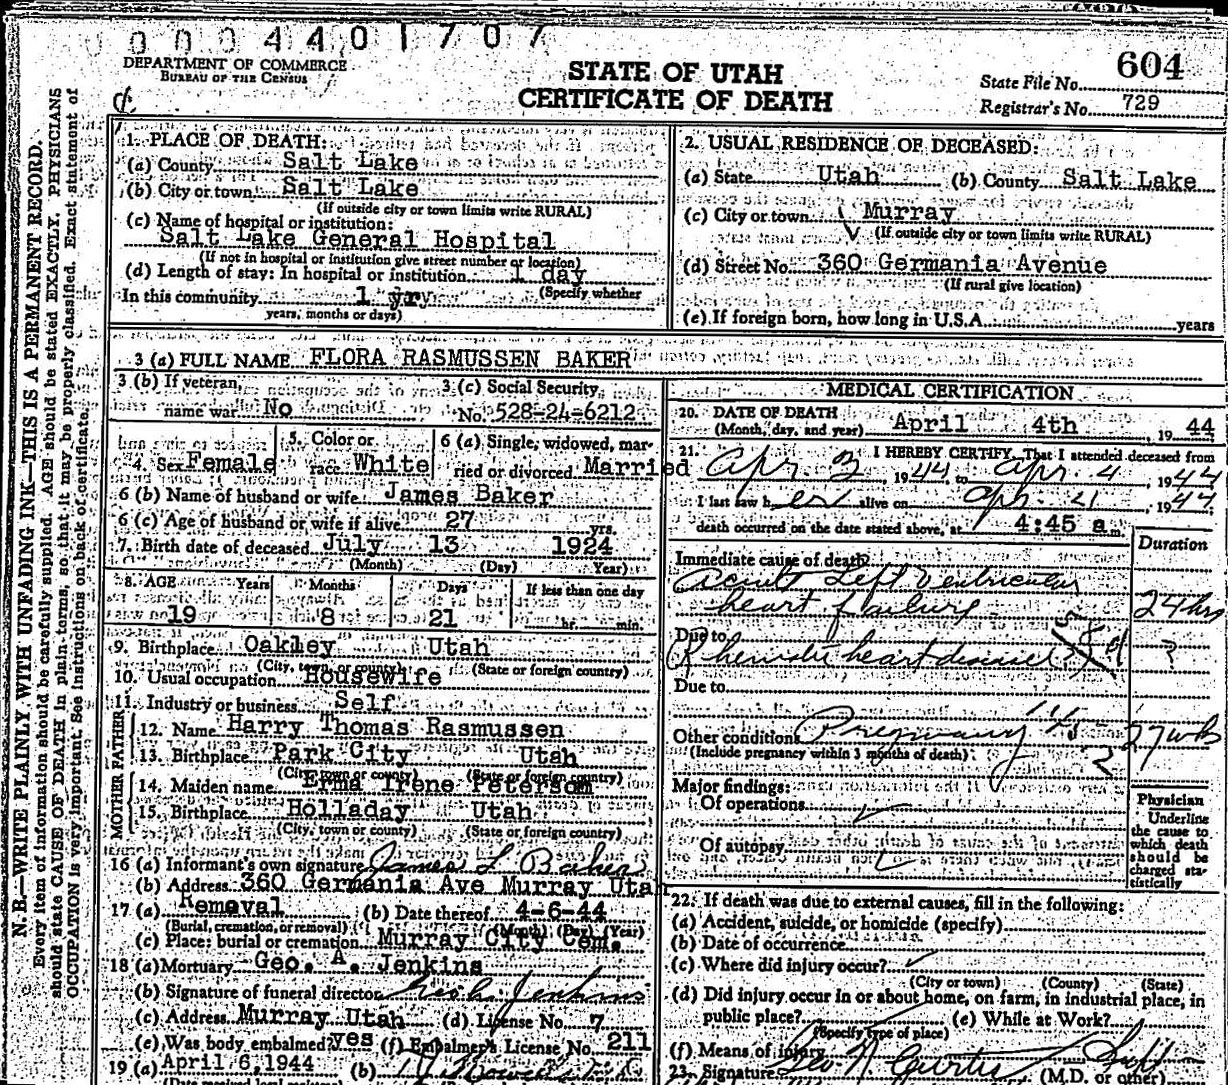 0 0 0 4 4 0 1 7 0 7
DEPARTMENT OF COMMERCE
BUREAU OF THE CENSUS
STATE OF UTAH
CERTIFICATE OF DEATH
State File No. 604
Registrar's No. 729
N. B.—WRITE PLAINLY WITH UNFADING INK—THIS IS A PERMANENT RECORD.
Every item of information should be carefully supplied. AGE should be stated EXACTLY. PHYSICIANS
should state CAUSE OF DEATH in plain terms, so that it may be properly classified. Exact statement of
OCCUPATION is very important. See instructions on back of certificate.
1. PLACE OF DEATH:
(a) County Salt Lake
(b) City or town Salt Lake
(If outside city or town limits write RURAL)
(c) Name of hospital or institution:
Salt Lake General Hospital
(If not in hospital or institution give street number or location)
(d) Length of stay: In hospital or institution 1 day
(Specify whether
In this community 1 yr
years, months or days)
2. USUAL RESIDENCE OF DECEASED:
(a) State Utah (b) County Salt Lake
(c) City or town Murray
(If outside city or town limits write RURAL)
(d) Street No. 360 Germania Avenue
(If rural give location)
(e) If foreign born, how long in U.S.A. years
3 (a) FULL NAME FLORA RASMUSSEN BAKER
3 (b) If veteran, 3 (c) Social Security
name war No No. 528-24-6212
4. Sex Female 5. Color or race White 6 (a) Single, widowed, married or divorced Married
6 (b) Name of husband or wife James Baker
6 (c) Age of husband or wife if alive 27 yrs.
7. Birth date of deceased July 13 1924
(Month) (Day) Year)
8. AGE Years Months Days If less than one day
19 8 21 hr. min.
9. Birthplace Oakley Utah
(City, town, or county) (State or foreign country)
10. Usual occupation Housewife
11. Industry or business Self
FATHER
12. Name Harry Thomas Rasmussen
13. Birthplace Park City Utah
(City, town or county) (State or foreign country)
MOTHER
14. Maiden name Erma Irene Peterson
15. Birthplace Holladay Utah
(City, town or county) (State or foreign country)
16 (a) Informant's own signature James L Baker
(b) Address 360 Germania Ave Murray Utah
17 (a) Removal (b) Date thereof 4-6-44
(Burial, cremation, or removal) (Month) (Day) (Year)
(c) Place: burial or cremation Murray City Cem.
18 (a) Mortuary Geo. A. Jenkins
(b) Signature of funeral director Geo A Jenkins
(c) Address Murray Utah (d) License No. 7
(e) Was body embalmed? yes (f) Embalmer's License No. 211
19 (a) April 6, 1944 (b)
(Date received local registrar)
MEDICAL CERTIFICATION
20. DATE OF DEATH
(Month, day, and year) April 4th, 1944
21. I HEREBY CERTIFY, That I attended deceased from
Apr. 3, 1944, to Apr. 4, 1944
I last saw her alive on Apr. 4, 1944
death occurred on the date stated above, at 4:45 a m.
Duration
Immediate cause of death
Acute Left Ventricular
heart failure 24 hrs
Due to
Rheumatic heart disease ?
Due to
Other conditions Pregnancy 27 wks
(Include pregnancy within 3 months of death)
Major findings:
Of operations
Of autopsy
Physician
Underline
the cause to
which death
should be
charged sta-
tistically
22. If death was due to external causes, fill in the following:
(a) Accident, suicide, or homicide (specify)
(b) Date of occurrence
(c) Where did injury occur?
(City or town) (County) (State)
(d) Did injury occur in or about home, on farm, in industrial place, in
public place? (e) While at Work?
(Specify type of place)
(f) Means of injury
23. Signature Geo N Curtis
(M.D. or other)